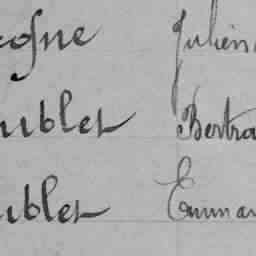 cosne Julien
ublet Bertra
ublet Emma